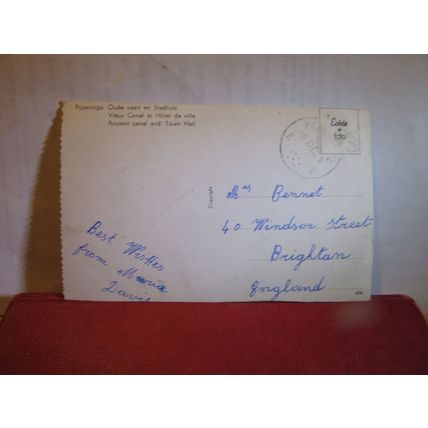 Poperinge. Oude vaart en Stadhuis
Vieux Canal et Hôtel de ville
Ancient canal and Town Hall
Echte
foto
Copyright
Mrs Bennet
40 Windsor Street
Brightan
England
Best Wishes
from Maria
Davis